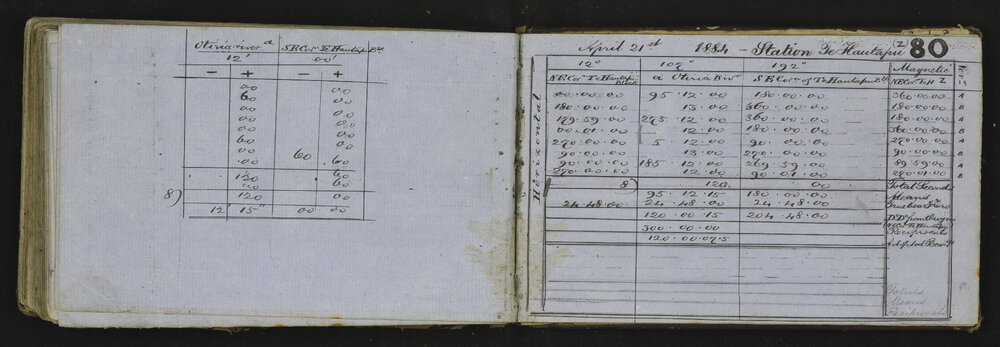 Otiria river a S.E. Cor Te Hautapu Blk
12' 00'
- + - +
00 00
60 00
00 00
00 00
00 00
60 00
00 60
00 60 60
120 60
00 60
8) 120 00
12' 15" 00 00
April 21st 1884 - Station Te Hautapu (Z) 80
12° 107° 192° Magnetic
N.E. Cor Te Hautapu Block a Otiria Rivr S.E. Cor of Te Hautapu Blk N.E. Cor Te H Z
Horizontal
00.00.00 95.12.00 180.00.00 360.00.00 A
180.00.00 13.00 360.00.00 180.00.00 B
179.59.00 275.12.00 360.00.00 180.00.00 A
00.01.00 12.00 180.00.00 360.00.00 B
270.00.00 5.12.00 90.00.00 270.00.00 A
90.00.00 13.00 270.00.00 90.00.00 B
90.00.00 185.12.00 269.59.00 89.59.00 A
270.00.00 12.00 90.01.00 270.01.00 B
8) 120 00 Total Secnd
95.12.15 180.00.00 Means
24.48.00 24.48.00 24.48.00
120.00.15 204.48.00
300.00.00 Reciprocals
120.00.07.5 Adopted
Totals
Means
Reciprocals